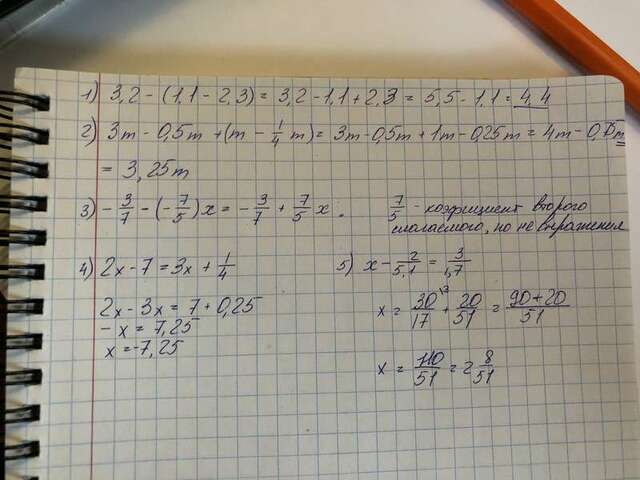 1) 3,2 - (1,1 - 2,3) = 3,2 - 1,1 + 2,3 = 5,5 - 1,1 = 4,4
2) 3m - 0,5m + (m - 1/4 m) = 3m - 0,5m + 1m - 0,25m = 4m - 0,75m
= 3,25m
3) - 3/7 - (- 7/5)x = - 3/7 + 7/5 x. 7/5 - коэфициент второго
слагаемого, но не выражения
4) 2x - 7 = 3x + 1/4
2x - 3x = 7 + 0,25
-x = 7,25
x = -7,25
5) x - 2/5,1 = 3/1,7
x = 30/17 + 20/51 = 90+20/51
x = 110/51 = 2 8/51